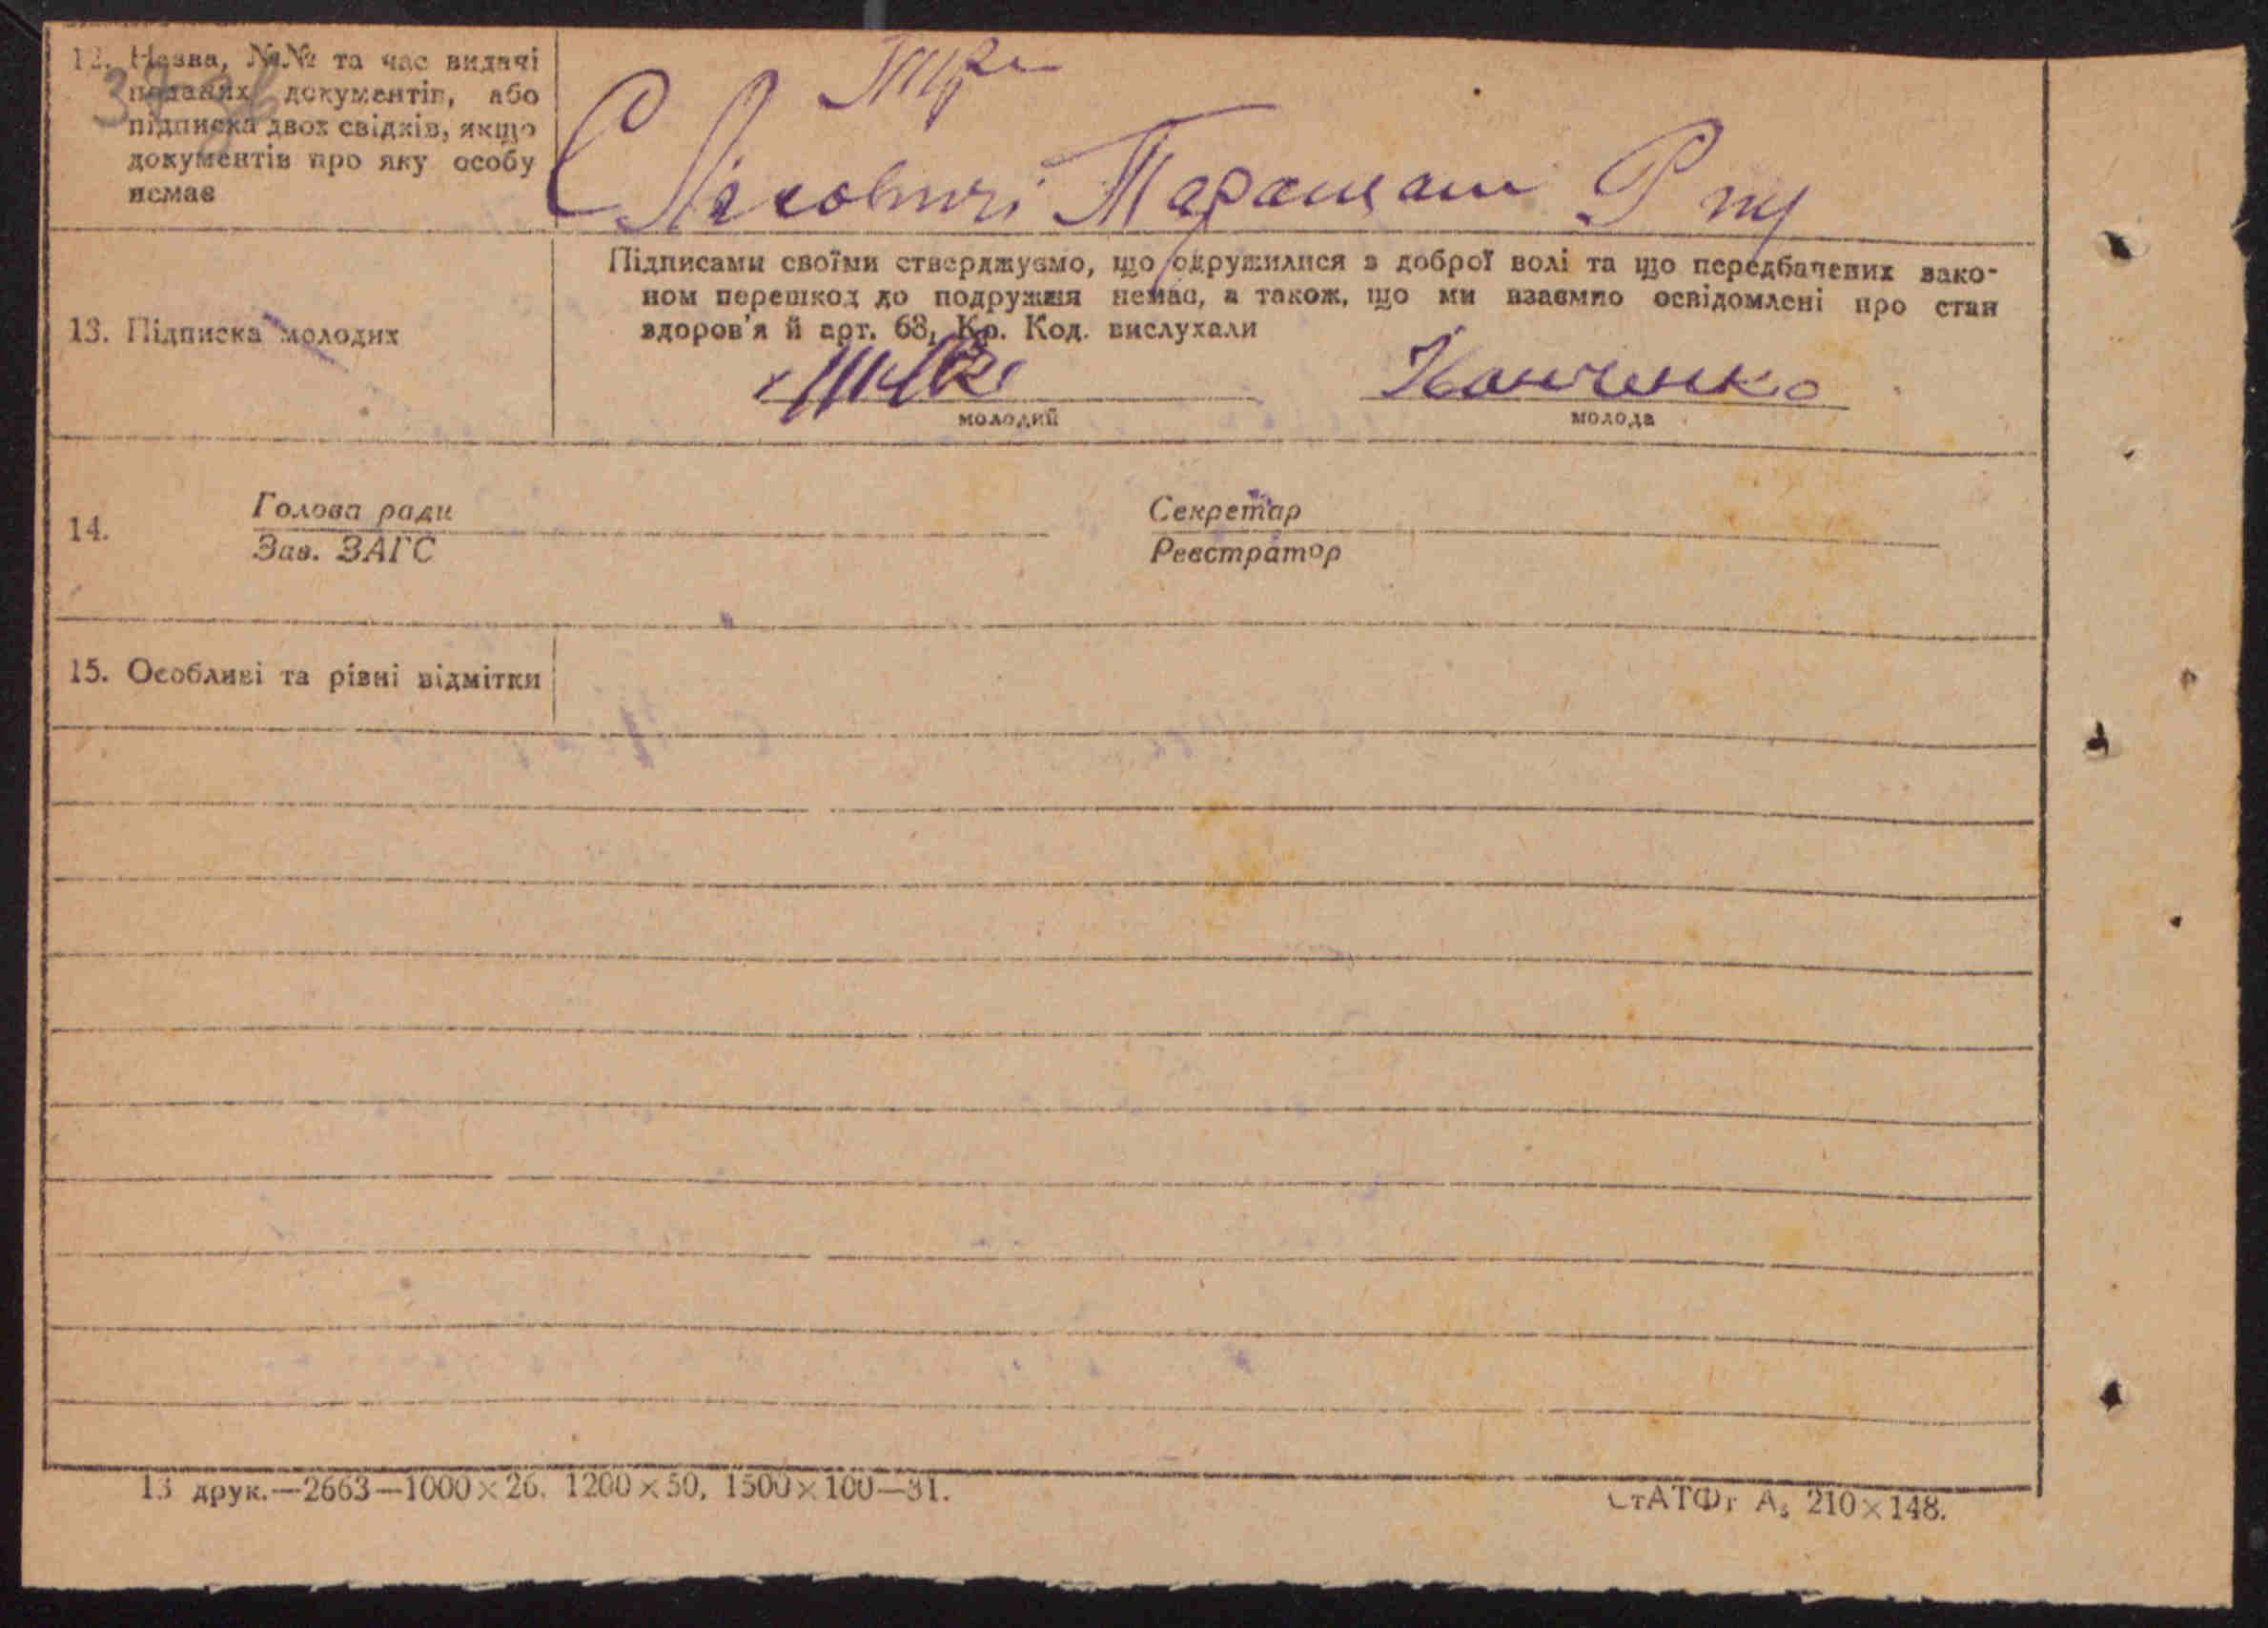 12. Назва, №№ та час видачі
поданих документів, або
підписка двох свідків, якщо
документів про яку особу
немає
С Лісовичі Таращан Р
Підписами своїми стверджуємо, що одружилися з доброї волі та що передбачених зако-
ном перешкод до подружжя немає, а також, що ми взаємно освідомлені про стан
здоров'я й арт. 68, Кр. Код. вислухали
13. Підписка молодих
Панченко
молодий молода
14. Голова ради Секретар
Зав. ЗАГС Реєстратор
15. Особливі та різні відмітки
13 друк.—2663—1000×26. 1200×50, 1500×100—31.
СтАТФт А₅ 210×148.